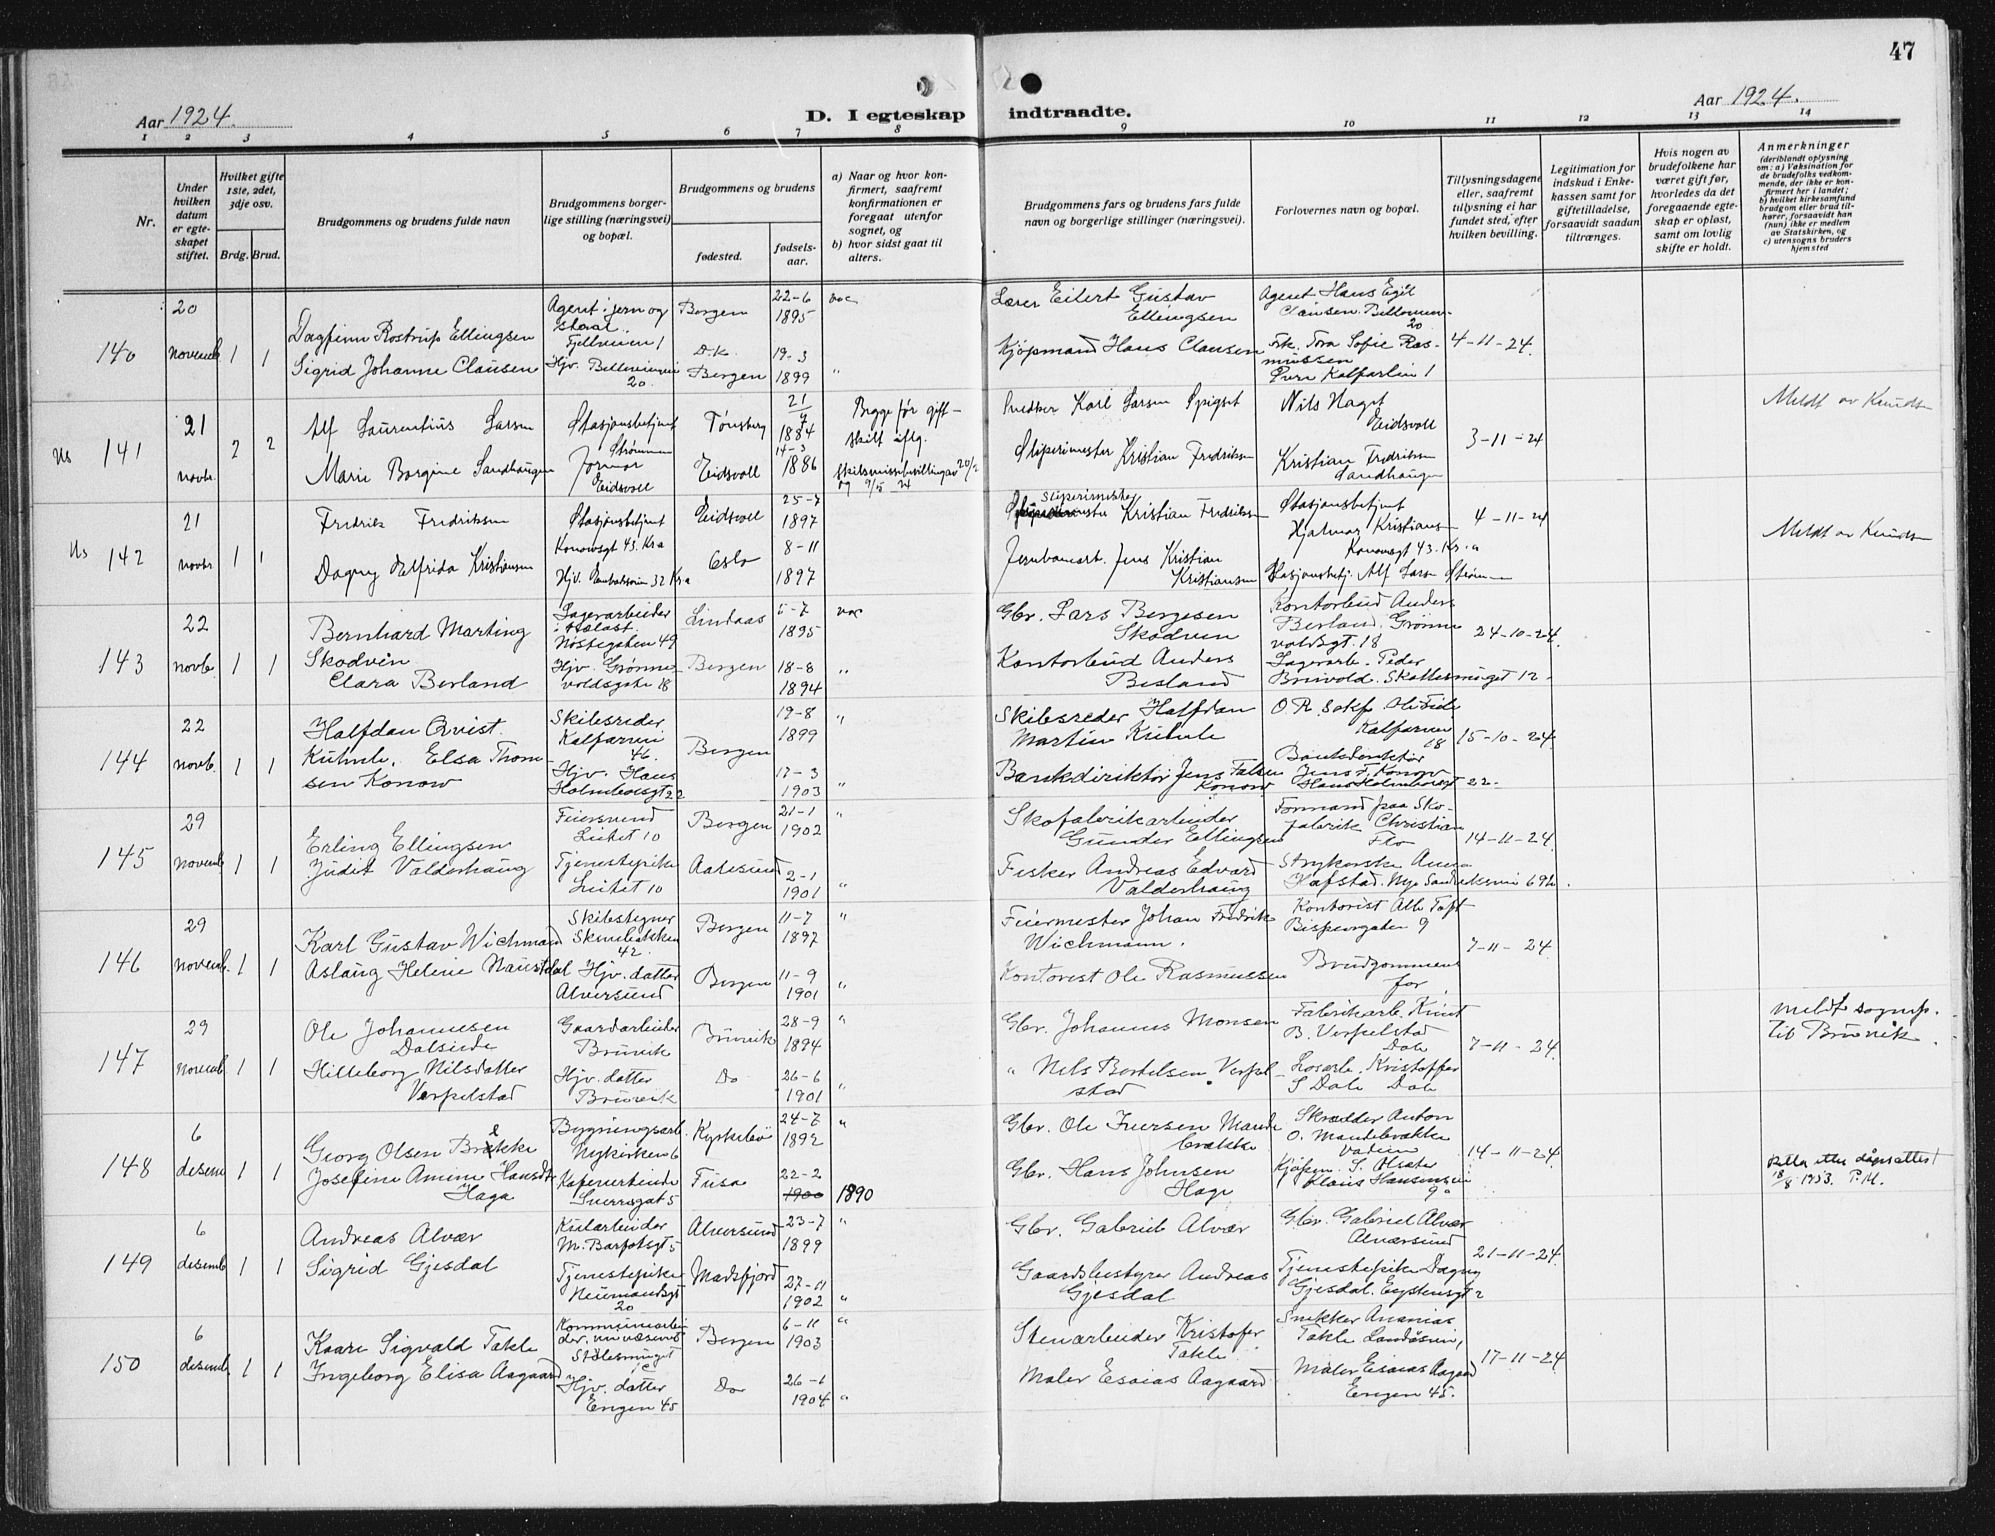 47
Aar 1924.
D. I egteskap
indtraadte.
Aar 1924.
1 2 3 4 5 6 7 8 9 10 11 12 13 14
Nr.
Under hvilken datum er egteskapet stiftet.
Hvilket gifte 1ste, 2det, 3dje osv.
Brdg. Brud.
Brudgommens og brudens fulde navn
Brudgommens borgerlige stilling (næringsvei) og bopæl.
Brudgommens og brudens
fødested.
fødselsaar.
a) Naar og hvor konfirmert, saafremt konfirmationen er foregaat utenfor sognet, og
b) hvor sidst gaat til alters.
Brudgommens fars og brudens fars fulde navn og borgerlige stillinger (næringsvei).
Forlovernes navn og bopæl.
Tillysningsdagene eller, saafremt tillysning ei har fundet sted, efter hvilken bevilling.
Legitimation for indskud i Enkekassen samt for giftetilladelse, forsaavidt saadan tiltrænges.
Hvis nogen av brudefolkene har været gift før, hvorledes da det foregaaende egteskap er opløst, samt om lovlig skifte er holdt.
Anmerkninger
(deriblandt oplysning om: a) Vaksination for de brudefolks vedkommende, der ikke er konfirmert her i landet; b) hvilket kirkesamfund brudgom eller brud tilhører, forsaavidt han (hun) ikke er medlem av Statskirken, og c) utensogns bruders hjemsted
140
20 novemb.
1 1
Dagfinn Rostrup Ellingsen
Sigrid Johanne Clausen
Agent i jern og
staal.
Fjellveien 1
Hjv.
20.
Bergen
D.k.
Bergen
22-6
1895
19-3
1899
vac
"
Lærer Eilert Gustav
Ellingsen
Kjøpmand Hans Clausen
Agent Hans Egil
Clausen.
20
Frk. Tora Sofie Ras-
mussen
Øvre Kalfarlien 1
4-11-24.
141
21 novbr.
2 2
Alf Laurentius Larsen
Marie Borgine Sandhaugen
Stasjonsbetjent
Strømmen
Eidsvoll
Tønsberg
Eidsvoll
21
1884
14-3
1886
Begge før gift-
skilt iflg.
skilsmissebevilling av
og 9/5 24
Snedker Karl Larsen
Sliperimester Kristian Fredriksen
Nils Haget
Eidsvoll
Kristian Fredriksen
Sandhaugen
3-11-24
Meldt av
142
21 novbr.
1 1
Fredrik Fredriksen
Dagny Elfrida Kristiansen
Stasjonsbetjent
Konowsgt 43. Kra
Hjv. 32 Kra
Eidsvoll
Oslo
25-7
1897
8-11
1897
Sliperimester
Kristian Fredriksen
Jernbanearb. Jens Kristian
Kristiansen
Stasjonsbetjent
Hjalmar Kristiansen
Konowsgt 43. Kr.a
Stasjonsbetj. Alf Larsen Strømmen
4-11-24
Meldt av
143
22 novb.
1 1
Bernhard Marting
Skodvin
Clara Berland
Lagerarbeider
Nøstegaten 49
Hjv. Grønne-
voldsgate 18
Lindaas
Bergen
5-7
1895
18-8
1894
vac
"
Gbr. Lars Bergesen
Skodvin
Kontorbud Anders
Berland
Kontorbud Anders
Berland. Grønne
voldsgt. 18
Lagerarb. Peder
Skottesmuget 12
24-10-24.
144
22 novb.
1 1
Halfdan Qvist
Kuhnle. Elsa Thom-
sen Konow
Skibsreder
Kalfarvei
46.
Hjv. Hans
Holmboesgt 22
Bergen
19-8
1899
17-3
1903
"
"
Skibsreder Halfdan
Martin Kuhnle
Bankdirektør Jens Falsen
Konow
O. R. sakf.
Kalfarvei
18
Bankdirektør
Jens F. Konow
Hans Holmboesgt 22
15-10-24
145
29 novemb
1 1
Erling Ellingsen
Judit Valderhaug
Feiersvend
10
Tjenestepike
10
Bergen
Aalesund
21-1
1902
2-1
1901
"
"
Skofabrikarbeider
Gunder Ellingsen
Fisker Andreas Edvard
Valderhaug
Formand paa Sko-
fabrik Christian
Flo
Strykerske Anna
Hafstad. Nye Sandviksvei 69b.
14-11-24.
146
29 novemb.
1 1
Karl Gustav Wichmand
Aslaug Helene Naustdal
Skibstegner
42.
Hjv. datter
Alversund
Bergen
Bergen
11-7
1897
11-9
1901
"
"
Feiermester Johan Fredrik
Wichmann.
Kontorist Ole Rasmussen
Kontorist Alb. Toft
Bispengaten 9
Brudgommens
far
7-11-24.
147
29 novemb.
1 1
Ole Johannesen
Dalseide
Hilleborg Nilsdatter
Verpelstad
Gaardarbeider
Bruvik
Hjv. datter
Bruvik
Bruvik
Do
28-9
1894
26-6
1901
"
"
Gbr. Johannes Monsen
" Nels Bertelsen Verpel-
stad
Fabrikarb. Knut
B. Verpelstad
Dale
Kristoffer
S Dale Dale
7-11-24.
meldt sognep.
til Bruvik.
148
6 desemb
1 1
Georg Olsen Brekke
Josefine Amine Hansdt.
Haga
Bygningsarb.
Nykirken 6
Sverresgat 5
Fusa
24-7
1892
22-2
1900
1890
"
Gbr. Ole Iversen Mande
brække
Gbr. Hans Johnsen
Hage
Skrædder Anton
O. Mandebrække
Kjøpm. S. Olsæter
9.
14-11-24.
rettet etter dåpsattest
18/8 1953. P.M.
149
6 desemb
1 1
Andreas Alvær
Sigrid Gjesdal
Kularbeider
M. Barfotsgt 5
Tjenestepike
Neumandsgt
20
Alversund
Masfjord
23-7
1899
27-11
1902
"
"
Gbr. Gabriel Alvær
Gaardsbestyrer Andreas
Gjesdal
Gbr. Gabriel Alvær
Alversund
Tjenestepike Dagny
Gjesdal. Eystensgt 2
21-11-24.
150
6 desemb.
1 1
Kaare Sigvald Takle
Ingeborg Elisa Aagaard
Kommunearbei
Hjv. datter
Engen 45
Bergen
Do
6-11
1903
26-1
1904
"
"
Stenarbeider Kristofer
Takle
Maler Esaias Aagaard
Snekker Ananias
Takle Landåsvei,
Maler Esaias Aagaard
Engen 45.
17-11-24.